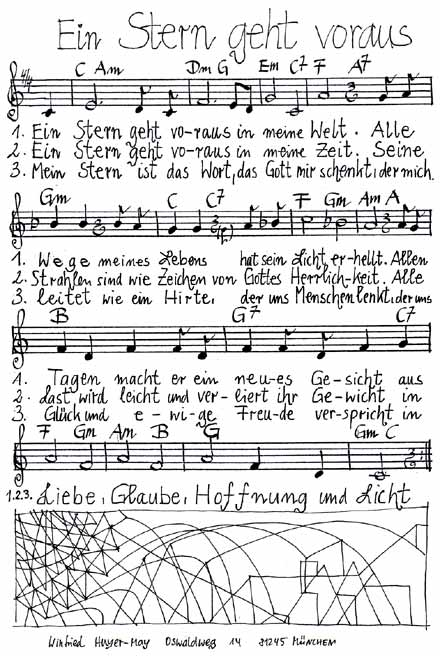 Ein Stern geht voraus
4/4 C Am Dm G Em C7 F A7
1. Ein Stern geht vo-raus in meine Welt. Alle
2. Ein Stern geht vo-raus in meine Zeit. Seine
3. Mein Stern ist das Wort, das Gott mir schenkt, der mich
Gm C C7 F Gm Am A
1. Wege meines Lebens hat sein Licht er-hellt. Allen
2. Strahlen sind wie Zeichen von Gottes Herrlich-keit. Alle
3. leitet wie ein Hirte, der uns Menschen lenkt, der uns
B G7 C7
1. Tagen macht er ein neu-es Ge-sicht aus
2. Last wird leicht und ver-liert ihr Ge-wicht in
3. Glück und e-wi-ge Freu-de ver-spricht in
F Gm Am B G Gm C
1.2.3. Liebe, Glaube, Hoffnung und Licht
Winfried Oswaldweg 14 81245 München